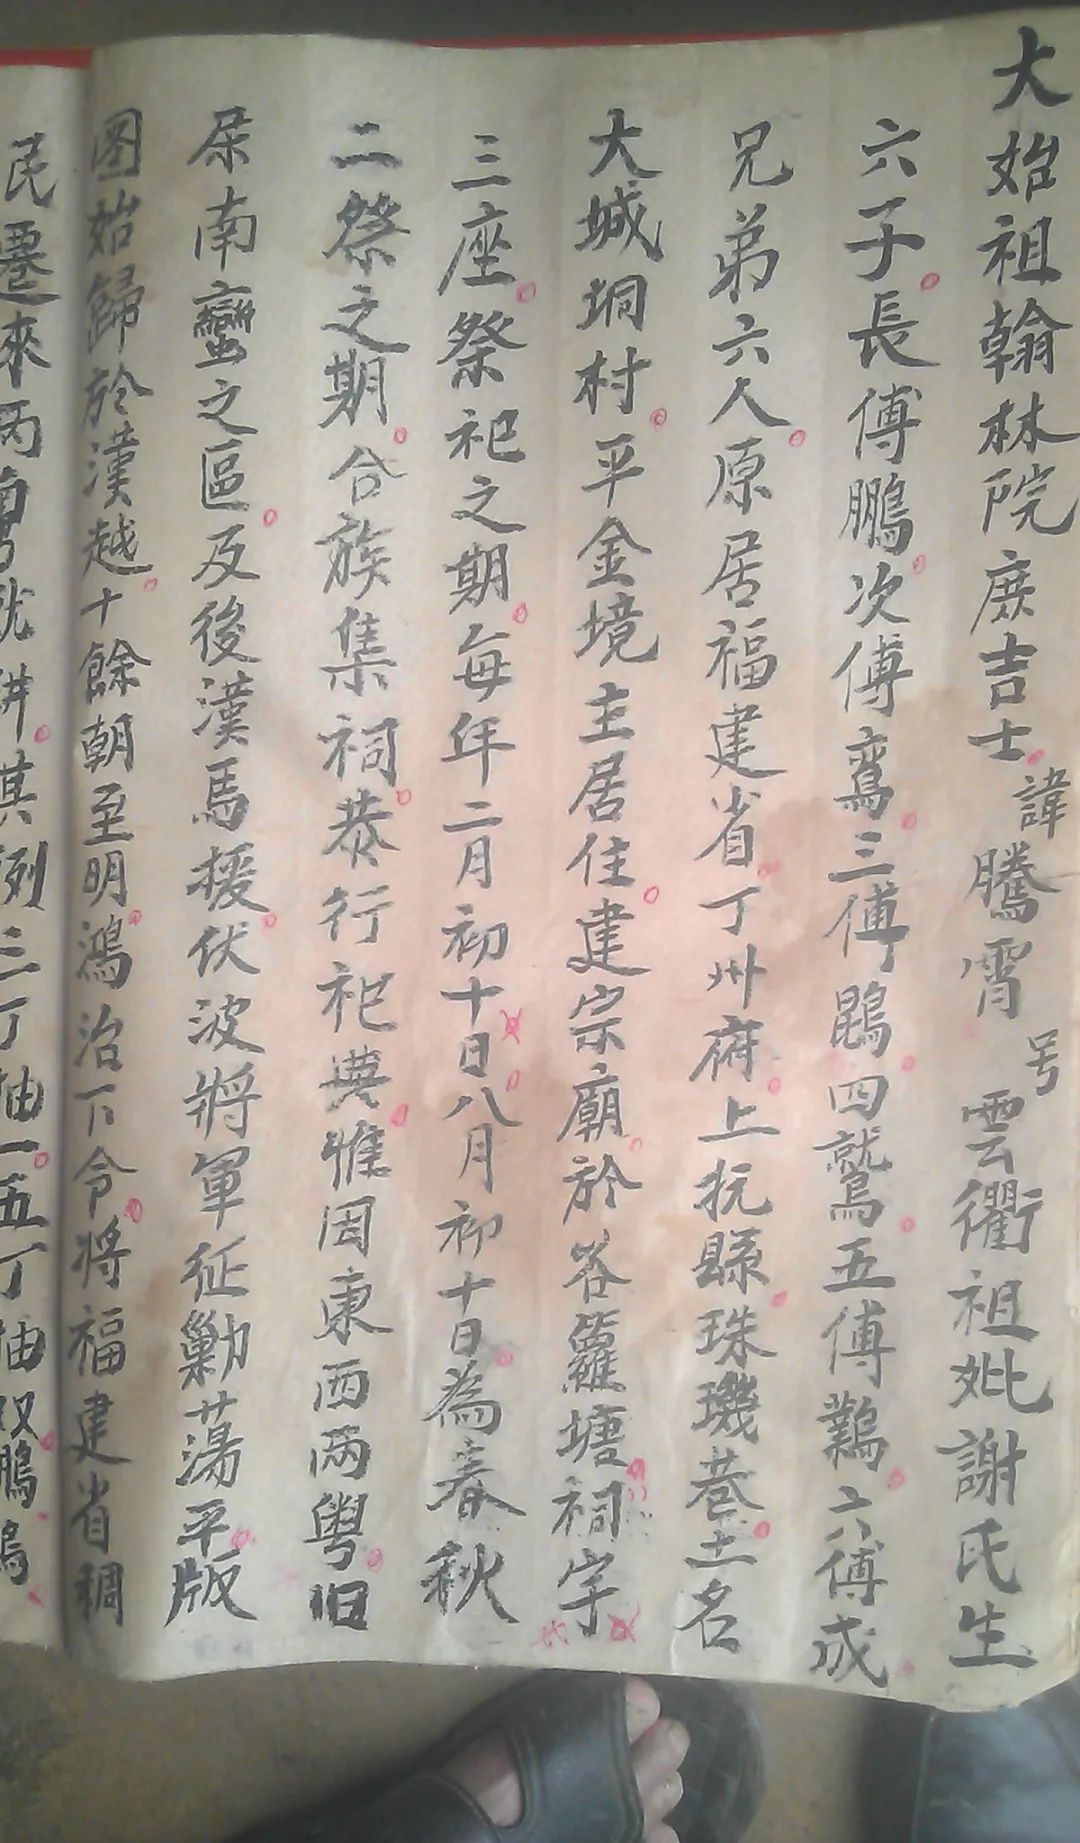 大始祖翰林院庶吉士諱騰霄号雲衢祖妣謝氏生
六子長傅鵬次傅鸾三傅鵾四鷲五傅鷄六傅成
兄弟六人原居福建省丁州府上抗縣珠璣巷土名
大城垌村平金境主居住建宗廟於茖籮塘祠宇
三座祭祀之期每年二月初十日八月初十日為春秋
二祭之期合族集祠恭行祀典惟因東西兩粵旧
尿南蠻之區及後漢馬援伏波將軍征勦蕩平版
图始歸於漢越十餘朝至明鴻治下令将福建省稠
民遷來两粤就耕其例三丁抽一五丁抽双鵬